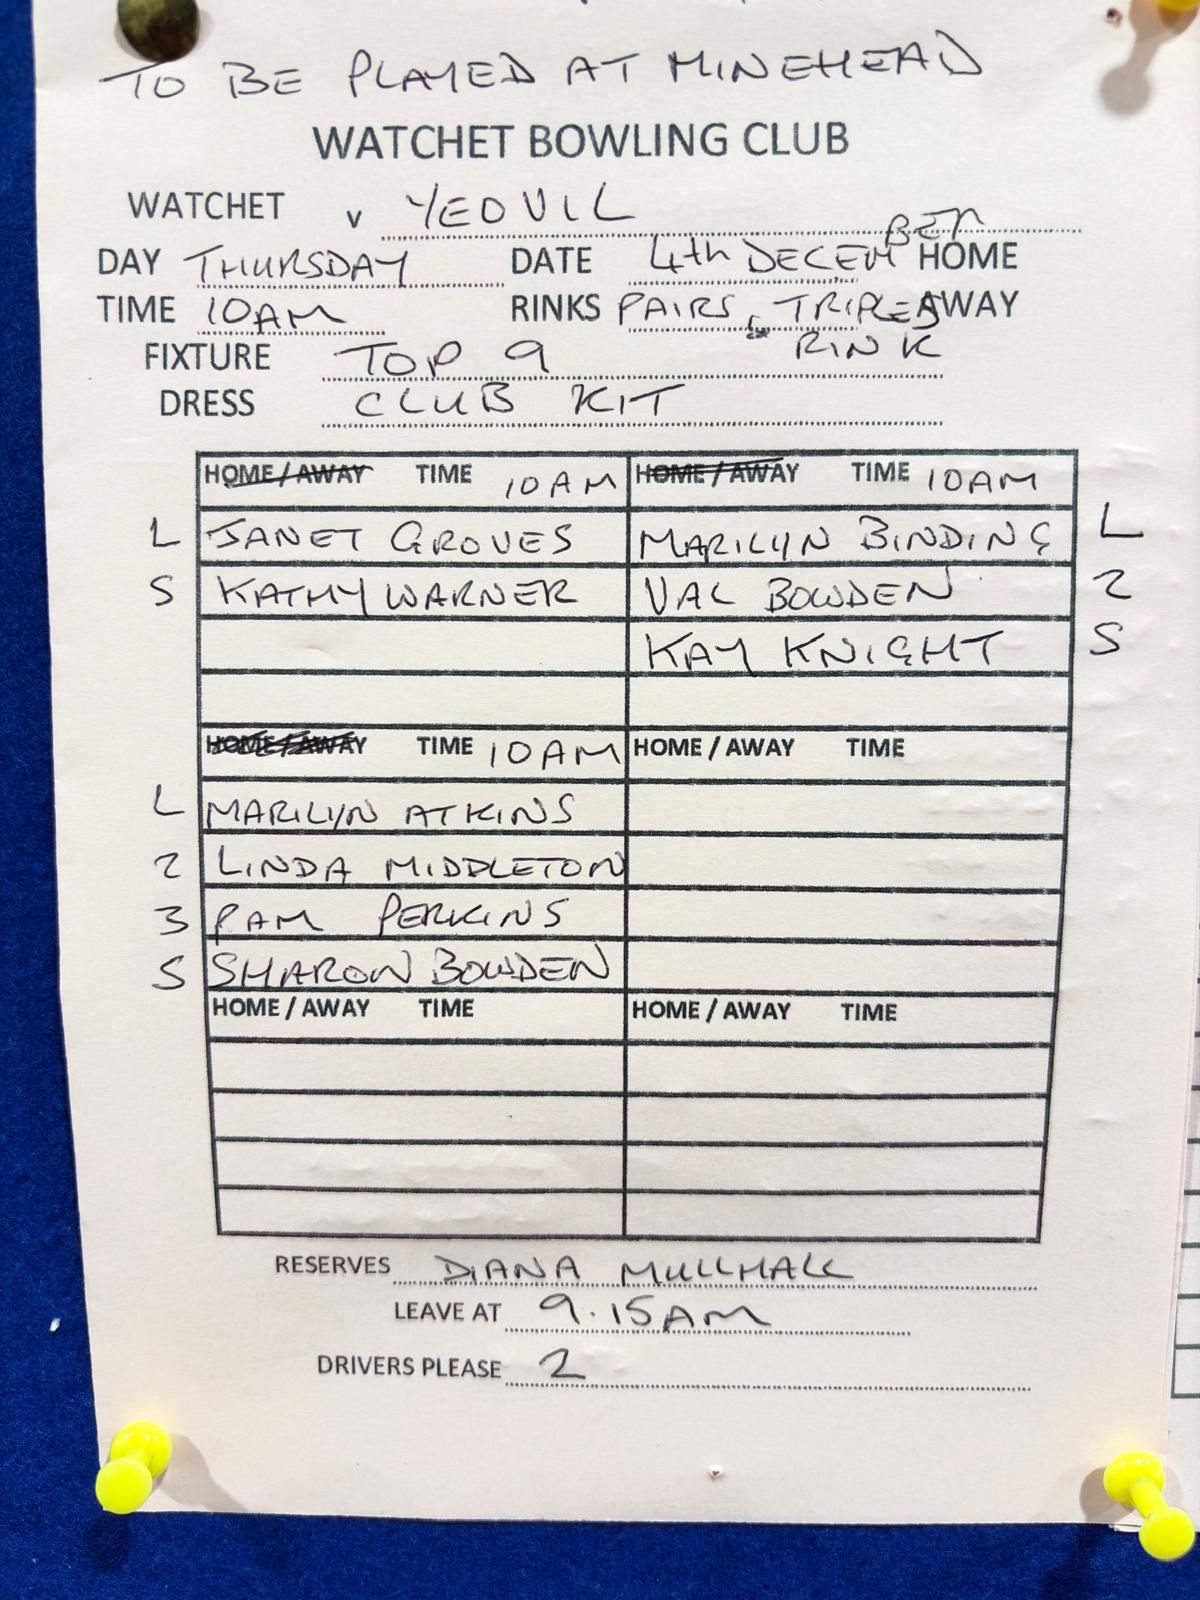 TO BE PLAYED AT MINEHEAD
WATCHET BOWLING CLUB
WATCHET v YEOVIL
DAY THURSDAY DATE 4th DECEMBER HOME
TIME 10AM RINKS PAIRS, TRIPLES AWAY
RINK
FIXTURE TOP 9
DRESS CLUB KIT
HOME / AWAY TIME 10AM HOME / AWAY TIME 10AM
L JANET GROVES MARILYN BINDING L
S KATHY WARNER VAL BOWDEN 2
KAY KNIGHT S
HOME / AWAY TIME 10AM HOME / AWAY TIME
L MARILYN ATKINS
2 LINDA MIDDLETON
3 PAM PERKINS
S SHARON BOWDEN
HOME / AWAY TIME HOME / AWAY TIME
RESERVES DIANA MULLHALL
LEAVE AT 9.15AM
DRIVERS PLEASE 2